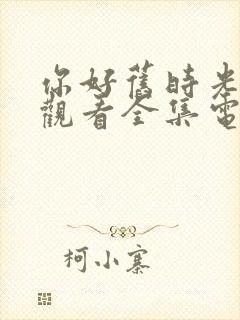 你好舊時光
觀看全集電
柯小寨